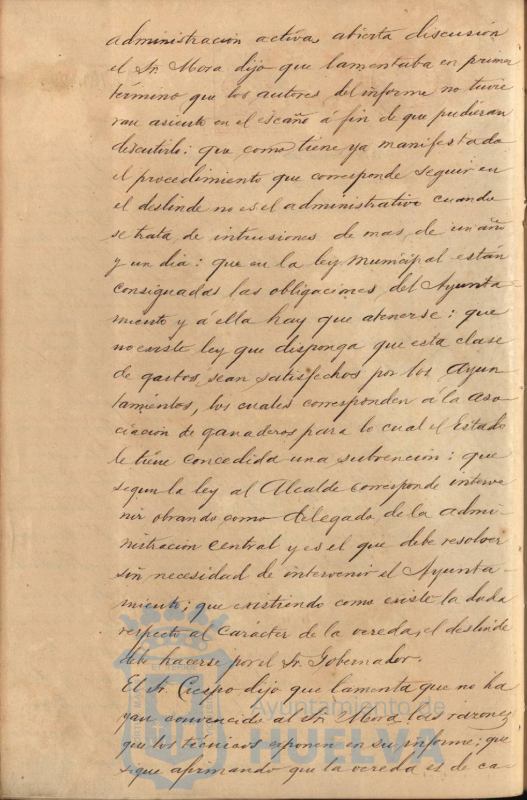 administracion activa, abierta discusión
el Sr. Mora dijo que lamentaba en primer
termino que los autores del informe no tuvie
ran asiento en el escaño á fin de que pudieran
discutirlo: que como tiene ya manifestado
el procedimiento que corresponde seguir en
el deslinde no es el administrativo cuando
se trata de intrusiones de mas de un año
y un dia: que en la ley municipal están
consignadas las obligaciones del Ayunta-
miento y á ella hay que atenerse: que
no existe ley que disponga que esta clase
de gastos sean satisfechos por los Ayun
tamientos, los cuales corresponden á la aso-
ciacion de ganaderos para lo cual el Estado
le tiene concedida una subvencion: que
segun la ley al Alcalde corresponde interve
nir obrando como delegado de la admi-
nistracion central y es el que debe resolver
sin necesidad de intervenir el Ayunta-
miento; que existiendo como existe la duda
respecto al carácter de la vereda, el deslinde
debe hacerse por el Sr. Gobernador.
El Sr. Crespo dijo que lamenta que no ha
yan convencido al Sr. Mora las razones
que los técnicos exponen en su informe; que
sigue afirmando que la vereda es de ca-
Ayuntamiento de
HUELVA